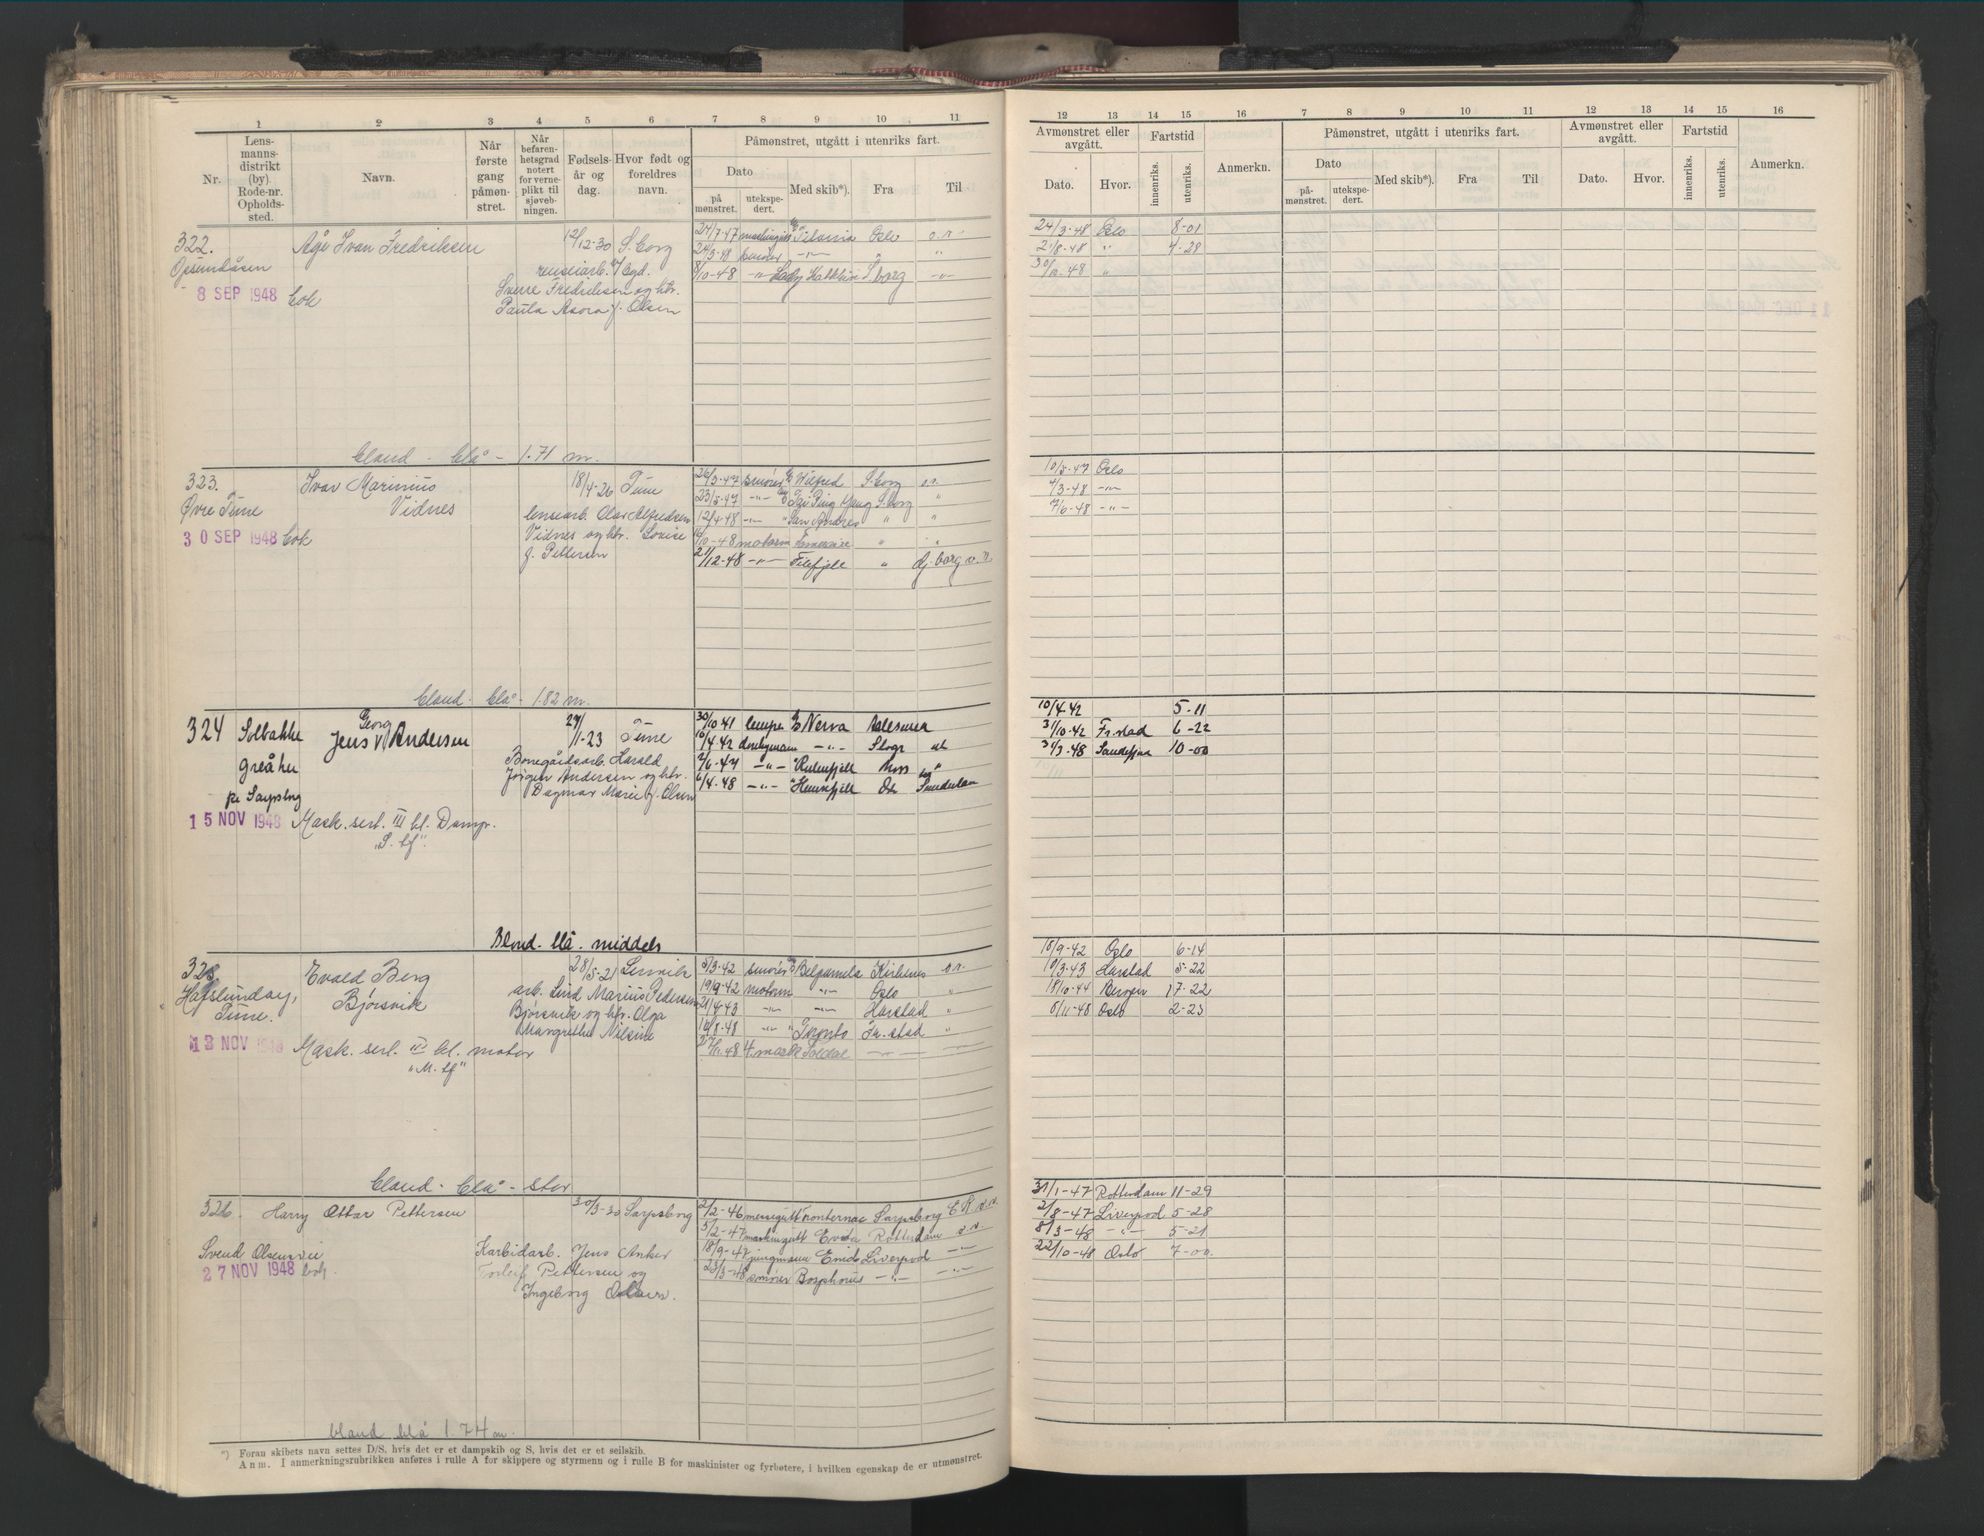 1 2 3 4 5 6 7 8 9 10 11
Nr.
Lens-
manns-
distrikt
(by).
Rode-nr.
Opholds-
sted.
Navn.
Når
første
gang
påmøn-
stret.
Når
befaren-
hetsgrad
notert
for verne-
plikt til
sjøveb-
ningen.
Fødsels-
år og
dag.
Hvor født og
foreldres
navn.
Påmønstret, utgått i utenriks fart.
Dato
på
mønstret.
utekspe-
dert.
Med skib*).
Fra
Til
322. Åge Ivan Fredriksen 12/12-30 S.borg
24/7-47 Titania Oslo o.v.
24/3-48 smører -"- "
8/10-48 -"- Lady Kathleen S.borg -"-
Opsundåsen
8 SEP 1948 bok
Sverre Fredriksen og htr.
Paula Asora f. Olsen
blond - blå - 1.71 m.
323. Ivar Marinius 18/4-26 Tune
Vidnes
Øvre Tune
30 SEP 1948 bok
lensearb. Olav Alfredsen
Vidnes og htr. Lovise
f. Pettersen
26/3-47 smører Wilfred S.borg o.v.
23/5-47 -"- Tai Ping Yang S.borg "
12/4-48 -"- " San Andres " "
/10-48 motorm "
21/12-48 -"- Filefjell "
blond - blå - 1.82 m.
324 Solbakke Jens Georg Andersen 29/1-23 Tune
Greåker
pr Sarpsbg
15 NOV 1948 Mask. sert. III kl. Damp.
Borregårdsarb. Harald
Jørgen Andersen og htr.
Dagmar Marie f. Olsen
30/10-41 lempe Nerva
10/4-42 donkeymann -"-
2/6-47 -"- " Rutenfjell Moss "
6/4-48 -"- " Hemsefjell Oslo Sunderlan
Blond - blå - middels
325 Evald Berg 28/5-21 Lenvik
Hafslundøy, Bjørsvik
Tune.
arb. Lind Marius Pedersen
Bjørsvik og htr. Olga
Margrethe Nilsine
13 NOV 1948 Mask. sert. III kl. motor
5/3-42 smører Belpamela Kirkenes o.v.
19/9-42 motorm -"- Oslo "
21/4-43 -"- -"- Harstad "
16/8-48 -"- " Toronto Fr.stad "
/11-48 4. mask Soldal -"- -"-
blond - blå - stor
326. Harry Ottar Pettersen 30/3-30 Sarpsborg
Svend Olsensvei
27 NOV 1948 bok.
Karbidarb. Jens Anker
Torleif Pettersen og
Ingeborg Olsen.
2/2-46 messegutt Fronternac Sarpsborg E.K o.v.
5/2-47 maskingutt Evita Rotterdam o.v.
18/9-47 jungmann Enid Liverpool -"-
23/3-48 smører Bosphorus -"- -"-
blond blå 1.74 m.
*) Foran skibets navn settes D/S, hvis det er et dampskib og S, hvis det er et seilskib.
Anm. I anmerkningsrubrikken anføres i rulle A for skippere og styrmenn og i rulle B for maskinister og fyrbøtere, i hvilken egenskap de er utmønstret.
12 13 14 15 16 7 8 9 10 11 12 13 14 15 16
Avmønstret eller
avgått.
Dato.
Hvor.
Fartstid
innenriks.
utenriks.
Anmerkn.
Påmønstret, utgått i utenriks fart.
Dato
på-
mønstret.
utekspe-
dert.
Med skib*).
Fra
Til
Avmønstret eller
avgått.
Dato.
Hvor.
Fartstid
innenriks.
utenriks.
Anmerkn.
24/3-48 Oslo 8-01
2/8-48 " 4-28
30/10-48 "
10/5-47 Oslo
4/3-48 -"-
7/6-48 -"-
10/4-42 5-11
31/10-42 Fr.stad 6-22
31/3-48 Sandefjor 10-00
18/9-42 Oslo 6-14
10/3-43 Harstad 5-22
13/10-44 Bergen 17-22
8/11-48 Oslo 2-23
31/1-47 Rotterdam 11-29
2/8-47 Liverpool 5-28
8/3-48 -"- 5-21
22/10-48 Oslo 7-00